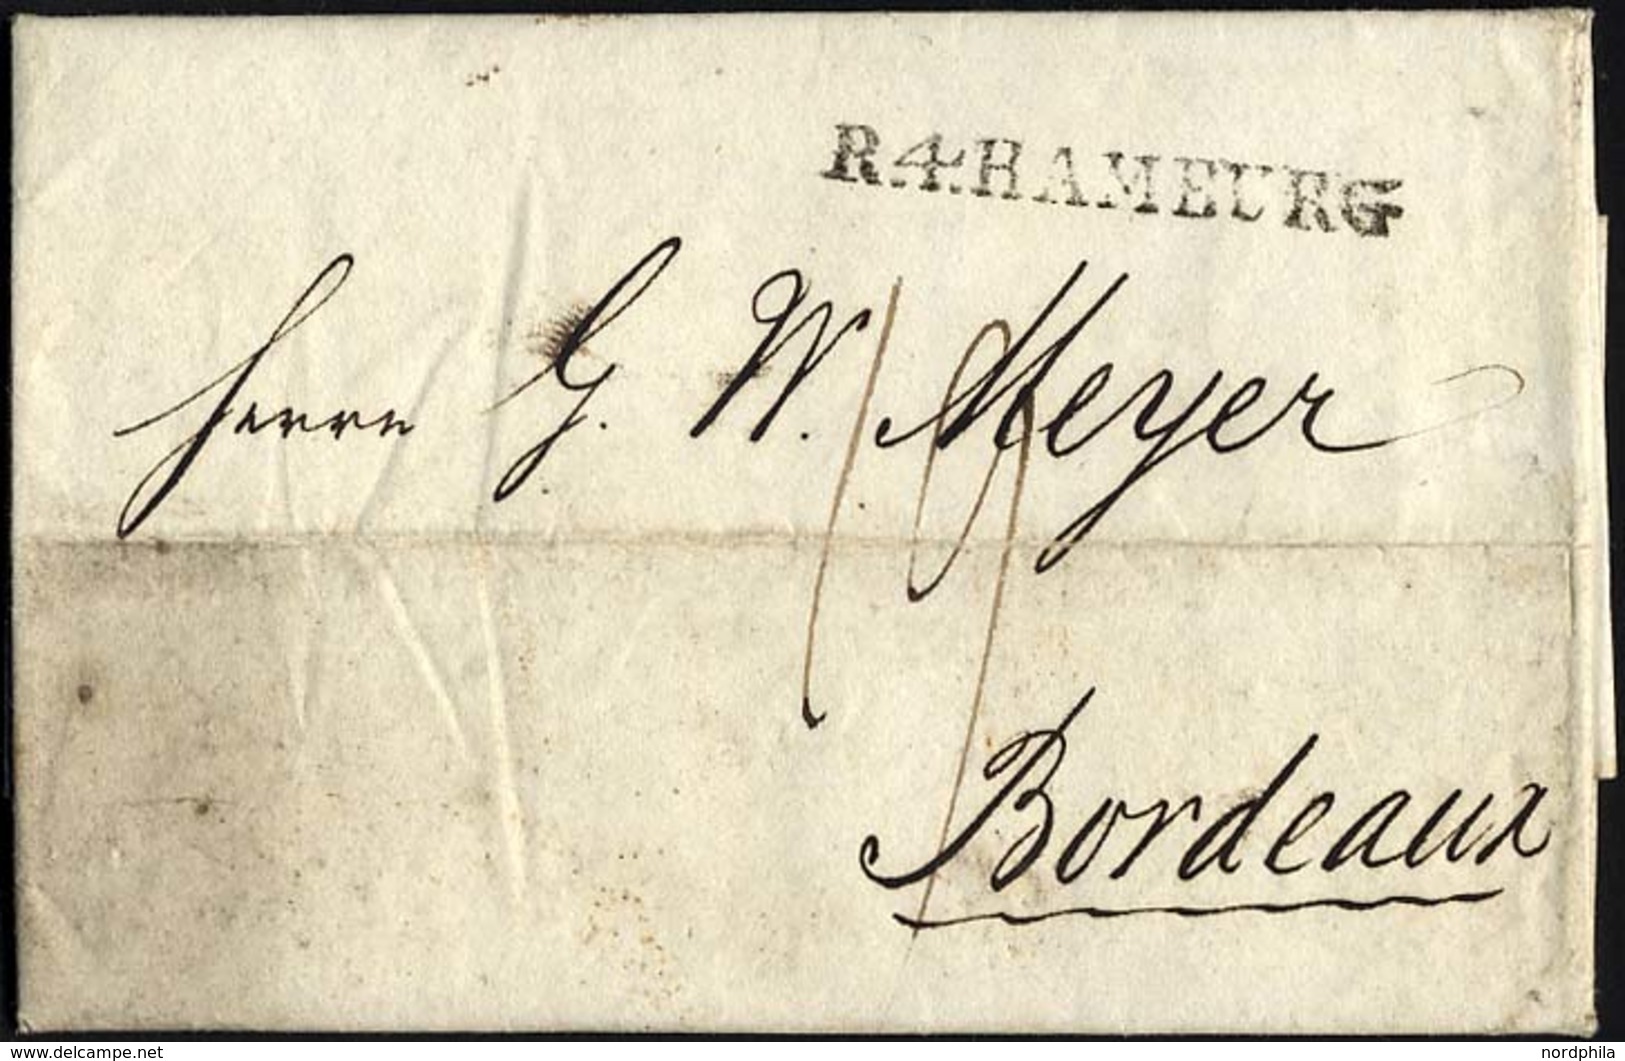 R.4.HAMBURG
Herrn G. W. Meyer
19
Bordeaux
www.delcampe.net
nordphila